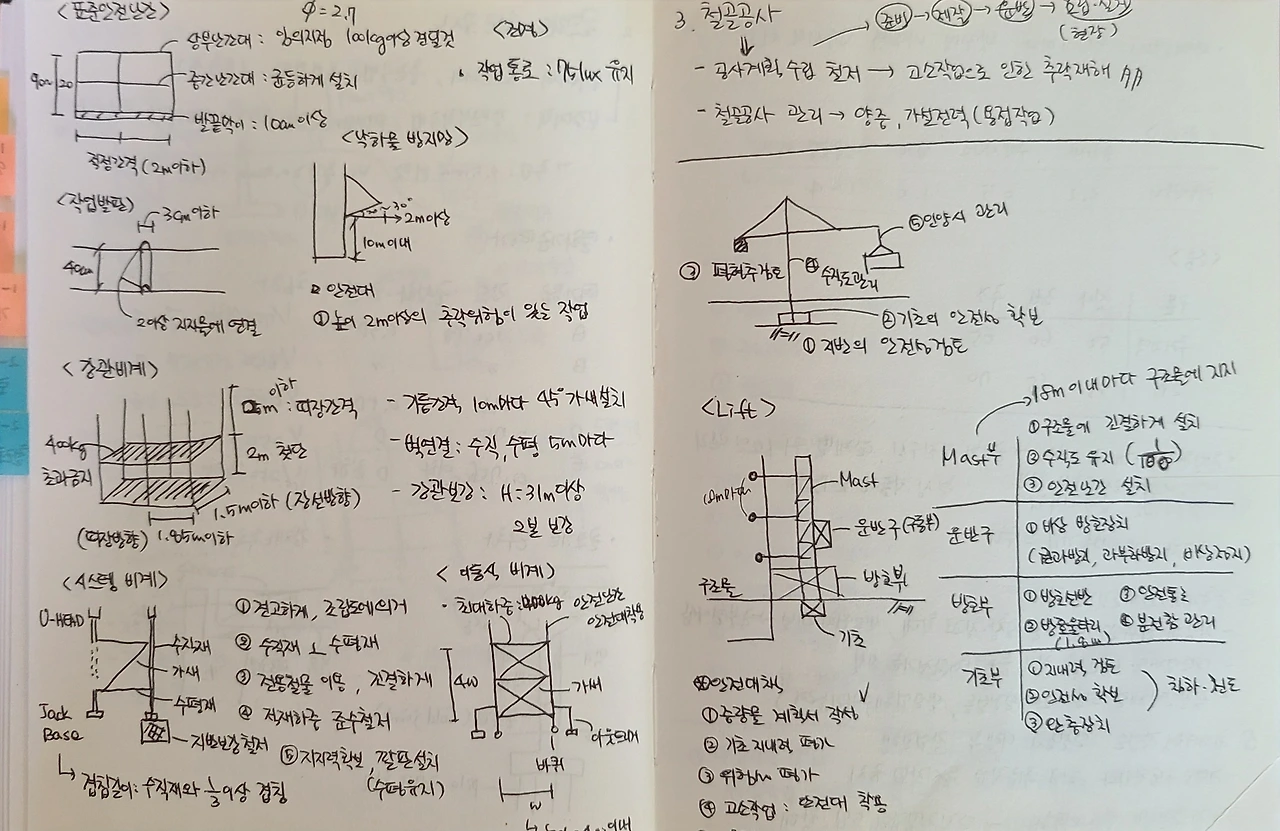 <표준안전난간>
φ=2.7
상부난간대 : 임의지점 100kg이상 견딜것
중간난간대 : 균등하게 설치
발끝막이 : 10cm이상
90cm
120
적정간격 (2m이하)
<전명>
작업통로 : 75lux 유지
<작업발판>
3cm이하
40cm
2이상 지지물에 연결
<낙하물 방지망>
30°
2m이상
10m이내
안전대
① 높이 2m이상의 추락위험이 있는 작업
<강관비계>
이하
m : 띠장간격
2m 첫단
400kg
초과금지
1.5m이하 (장선방향)
(띠장방향) 1.85m이하
- 기둥간격 10m마다 45° 가새설치
- 벽연결 : 수직, 수평 5m마다
- 강관보강 : H=31m이상
2본 보강
<시스템 비계>
U-HEAD
수직재
가새
수평재
Jack
Base
지반보강철저
↳ 겹침길이 : 수직재와 1/3이상 겹침
① 견고하게, 조립도에의거
② 수직재 ⊥ 수평재
③ 전용철물 이용, 긴결하게
④ 적재하중 준수철저
⑤ 지지력확보, 깔판설치
(수평유지)
<이동식 비계>
· 최대하중 : 400kg
안전난간
안전대착용
4w
가새
아웃트리거
바퀴
w
3. 철골공사
준비 → 제작 → 운반 → 조립·설치
(현장)
- 공사계획 수립 철저 → 고소작업으로 인한 추락재해 ↑↑
- 철골공사 관리 → 양중, 가설전력 (용접작업)
⑤ 인양시 관리
③ 평형추검토
④ 수직도관리
② 기초의 안전성 확보
① 지반의 안전성검토
<Lift>
18m이내마다 구조물에 지지
Mast
운반구
방호부
기초
구조물
18m마다
Mast부
① 구조물에 긴결하게 설치
② 수직도 유지
③ 안전난간 설치
운반구
① 비상 방호장치
(권과방지, 과부하방지, 비상정지)
방호부
① 방호선반 ③ 안전통로
② 방호울타리 ④ 분전함 관리
(1.8m)
기초부
① 지내력 검토
② 안전성 확보
③ 완충장치
침하·전도
※안전대책
① 중량물 계획서 작성
② 기초 지내력 평가
③ 위험성 평가
④ 고소작업 : 안전대 착용